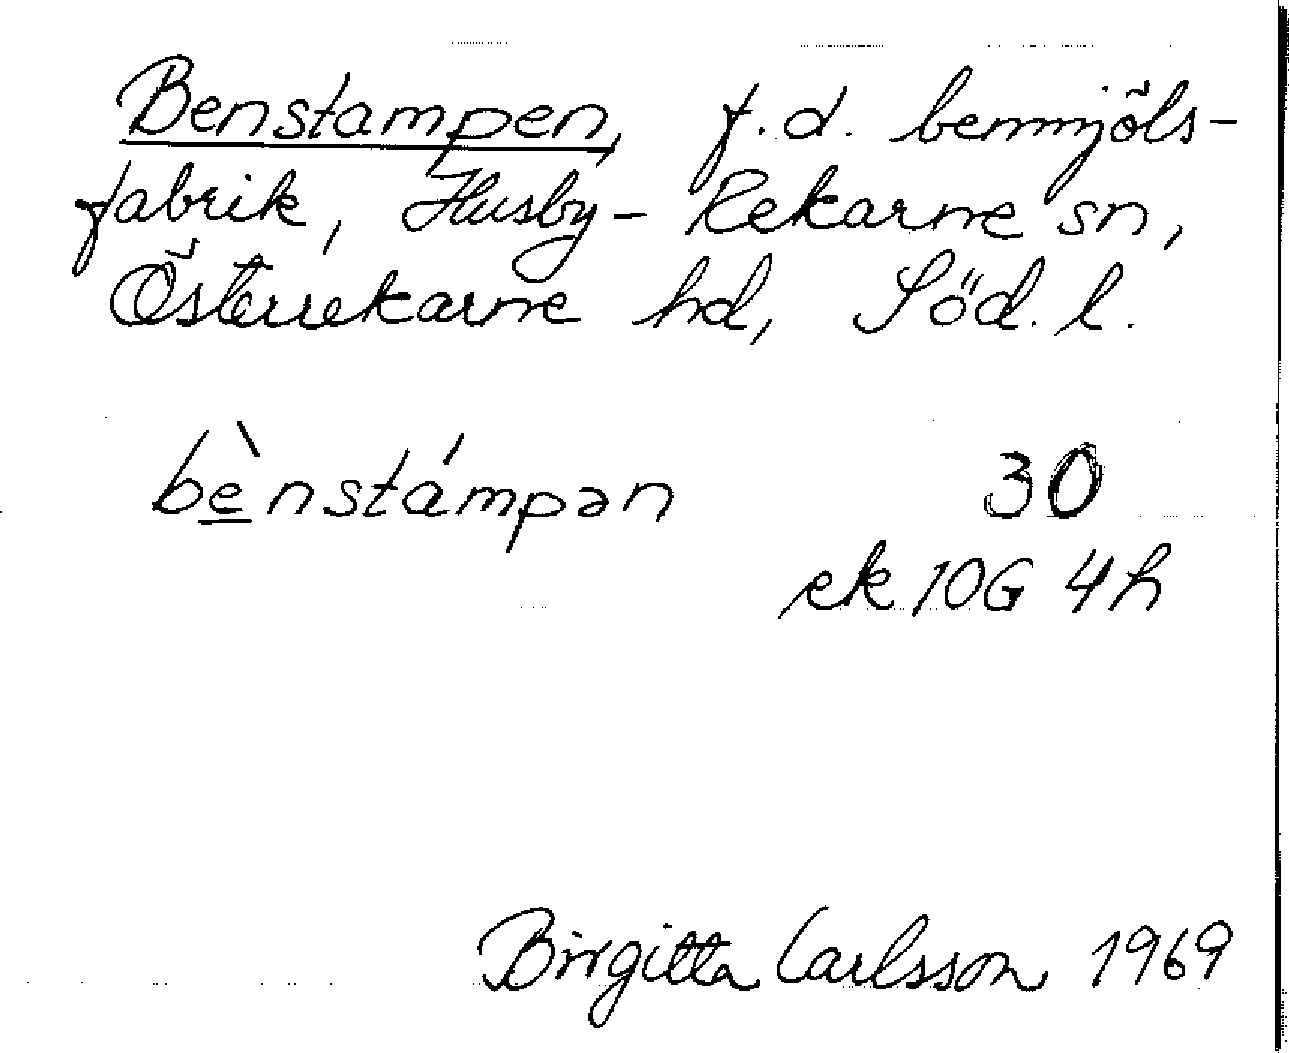 Benstampen, f.d. benmjöls-
fabrik, Husby-Rekarne sn,
Österrekarne hd, Söd. l.
bè̲nstámpən 30
ek 10G 4h
Birgitta Carlsson 1969